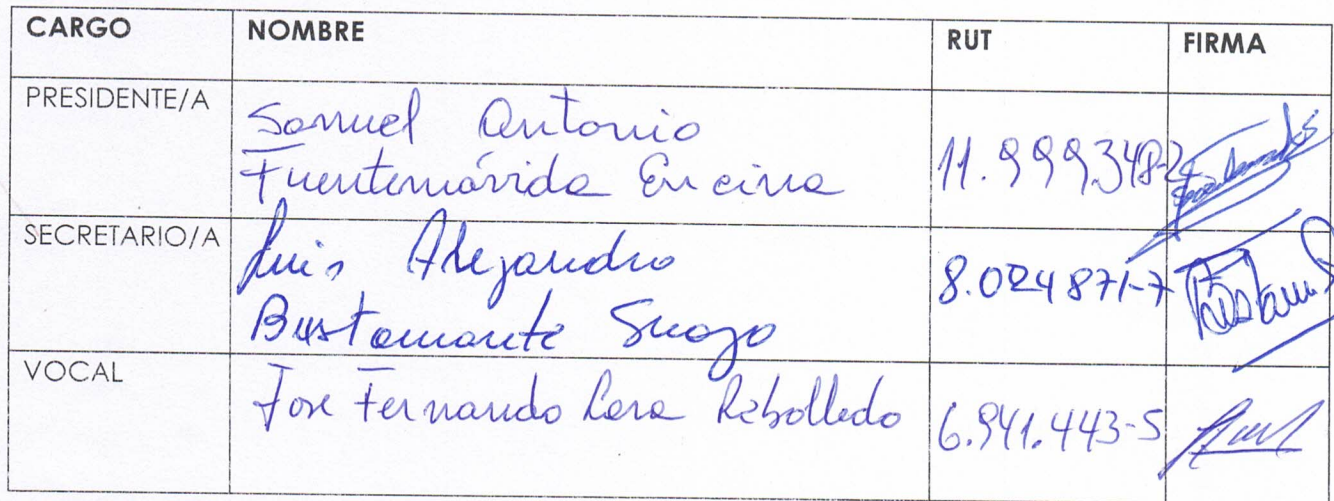 CARGO NOMBRE RUT FIRMA
PRESIDENTE/A Samuel Antonio
Fuentemávida Encina 11.999348-2
SECRETARIO/A Luis Alejandro 8.024871-7
Bustamante Suazo
VOCAL Jose Fernando Lara Rebolledo 6.941.443-5